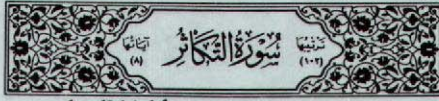 ترتيبها (١٠٢) سُورَةُ التَّكَاثُرِ آياتها (٨)